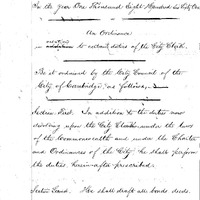 In the year One Thousand Eight Hundred and Sixty One
An Ordinance
in relation
to certain duties of the City Clerk.
Be it ordained by the City Council of the
City of Cambridge, as follows:
Section First. In addition to the duties now
devolving upon the City Clerk under the laws
of the Commonwealth and under the Charter
and Ordinances of the City, he shall perform
the duties herein-after prescribed.
Section Second. He shall draft all bonds, deeds,